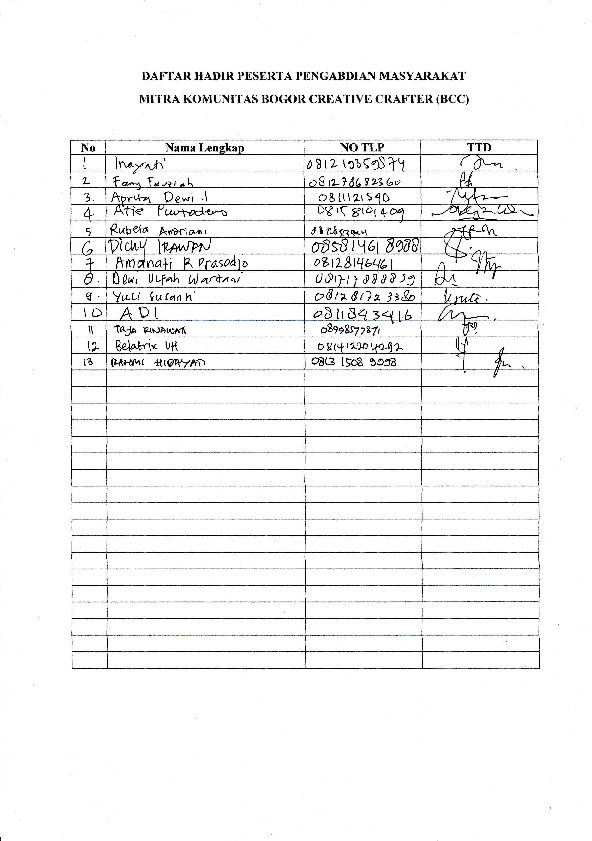 DAFTAR HADIR PESERTA PENGABDIAN MASYARAKAT
MITRA KOMUNITAS BOGOR CREATIVE CRAFTER (BCC)
No Nama Lengkap NO TLP TTD
1 Inayati 081219359874
2 Fauziah 081278682360
3. Aprita Dewi .I 0811121540
4 Atie 0815 8101409
5 Rubeia Andriani
6 Dicky IRAWAN 08581461 8988
7 Amanati R Prasodjo 08128146461
8. Dewi Ulfah Wardani 081717888859
9. Yuli Susanti 08128172 3380
10 ADI 0811843416
11 08998577871
12 Belatrix UH 081412204292
13 RAHMI HIDAYATI 0813 1508 9098